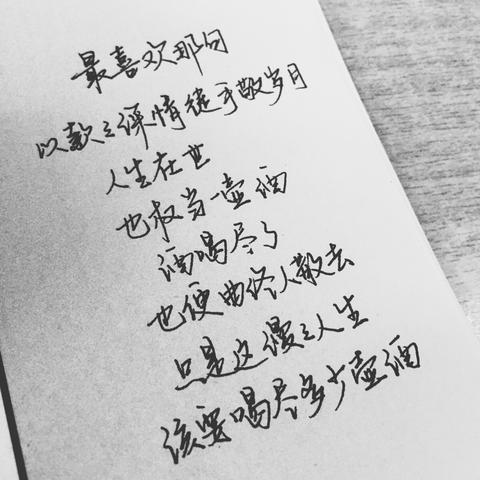 最喜欢那句
以款款深情徒手敬岁月
人生在世
也权当一壶酒
酒喝尽了
也便曲终人散去
只是这漫漫人生
该要喝尽多少壶酒